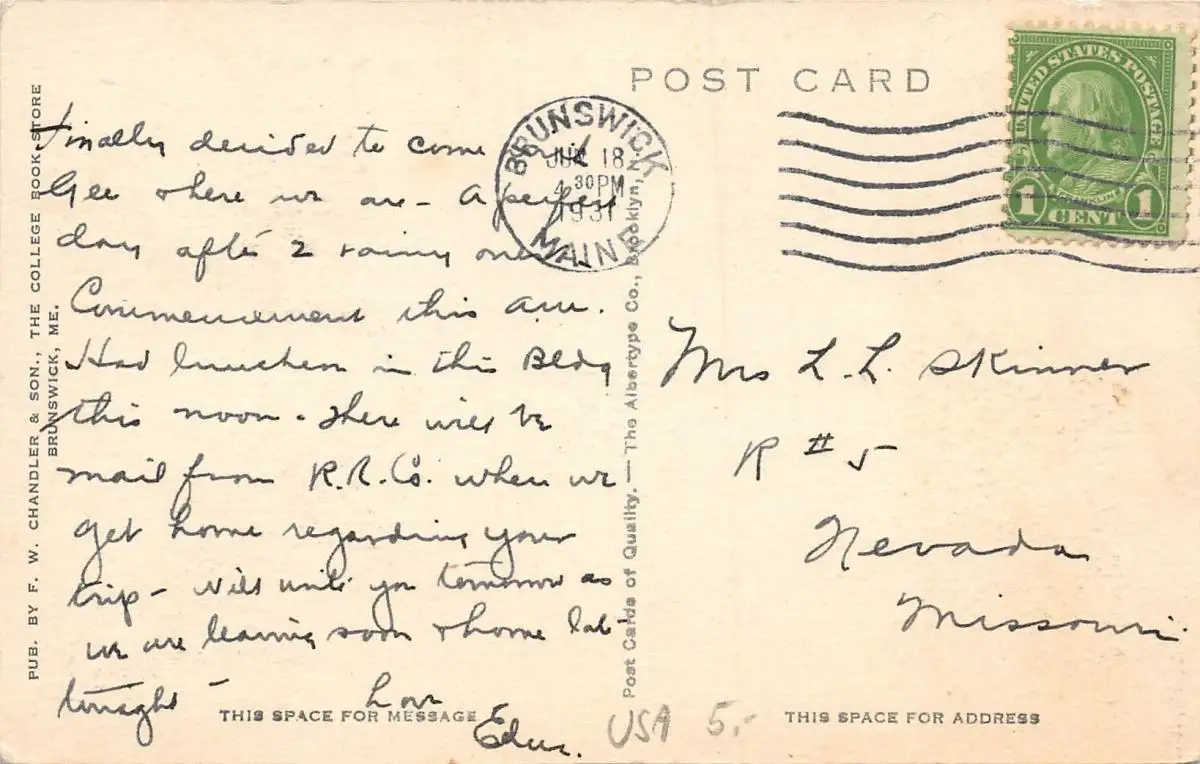 POST CARD
BRUNSWICK
JUN 18
4 30 PM
1931
MAINE
UNITED STATES POSTAGE
FRANKLIN
1 CENT 1
Finally decided to come
Gee & here we are - A perfect
day after 2 rainy ones
Commencement this am.
Had luncheon in this Bldg
this noon - There will be
mail from R.R.Co. when we
get home regarding your
trip - Will write you tomorrow as
we are leaving soon & home late
tonight - Love
THIS SPACE FOR MESSAGE
Mrs L. L. Skinner
R # 5
Nevada
Missouri
THIS SPACE FOR ADDRESS
USA 5.-
PUB. BY F. W. CHANDLER & SON., THE COLLEGE BOOK STORE
BRUNSWICK, ME.
Post Cards of Quality. — The Albertype Co., Brooklyn, N.